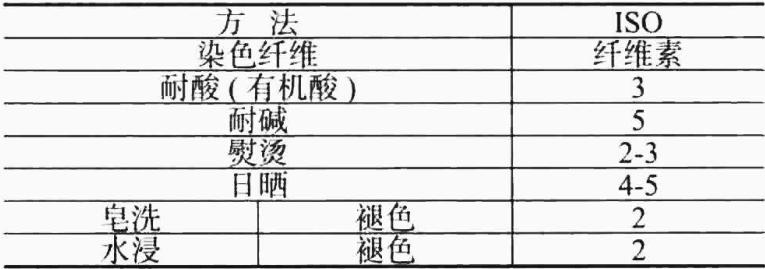 方 法 ISO
染色纤维 纤维素
耐酸(有机酸) 3
耐碱 5
熨烫 2-3
日晒 4-5
皂洗 褪色 2
水浸 褪色 2